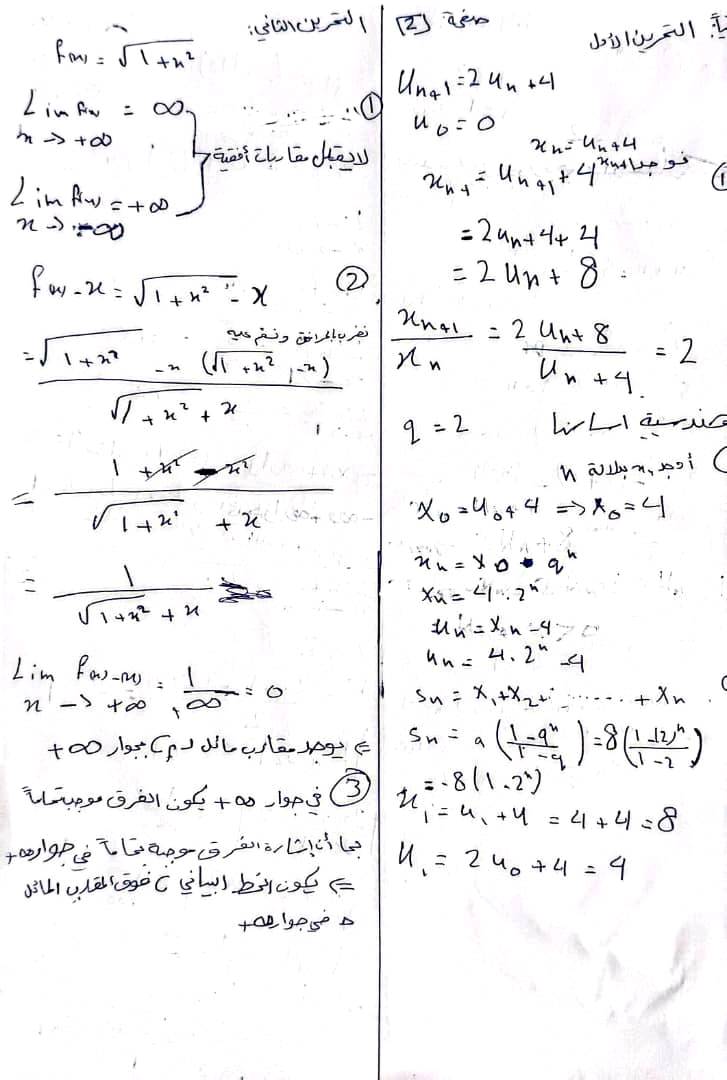 صفحة [2]
التمرين الأول
U_{n+1} = 2U_n + 4
U_0 = 0
x_n = U_n + 4
① نوجد x_{n+1}
x_{n+1} = U_{n+1} + 4
= 2U_n + 4 + 4
= 2U_n + 8
\frac{x_{n+1}}{x_n} = \frac{2U_n + 8}{U_n + 4} = 2
هندسية أساسها q = 2
أوجد x_n بدلالة n
x_0 = U_0 + 4 => x_0 = 4
x_n = x_0 · q^n
x_n = 4 · 2^n
U_n = x_n - 4
U_n = 4 · 2^n - 4
S_n = x_1 + x_2 + ....... + x_n
S_n = a (\frac{1 - q^n}{1 - q}) = 8 (\frac{1 - (2)^n}{1 - 2})
= -8 (1 - 2^n)
x_1 = U_1 + 4 = 4 + 4 = 8
U_1 = 2U_0 + 4 = 4
التمرين الثاني:
f(x) = \sqrt{1 + x^2}
①
Lim f(x) = ∞
x -> +∞
لا يقبل مقاربات أفقية
Lim f(x) = +∞
x -> -∞
②
f(x) - x = \sqrt{1 + x^2} - x
نضرب بالمرافق ونقسم عليه
= \frac{\sqrt{1 + x^2} - x (\sqrt{1 + x^2} - x)}{\sqrt{1 + x^2} + x}
= \frac{1 + x^2 - x^2}{\sqrt{1 + x^2} + x}
= \frac{1}{\sqrt{1 + x^2} + x}
Lim f(x) - x = \frac{1}{∞} = 0
x -> +∞
<= يوجد مقارب مائل لـ C بجوار +∞
③ في جوار +∞ يكون الفرق موجب تماماً
بما أن إشارة الفرق موجبة تماماً في جوار +∞
<= يكون الخط البياني C فوق المقارب المائل
Δ في جوار +∞